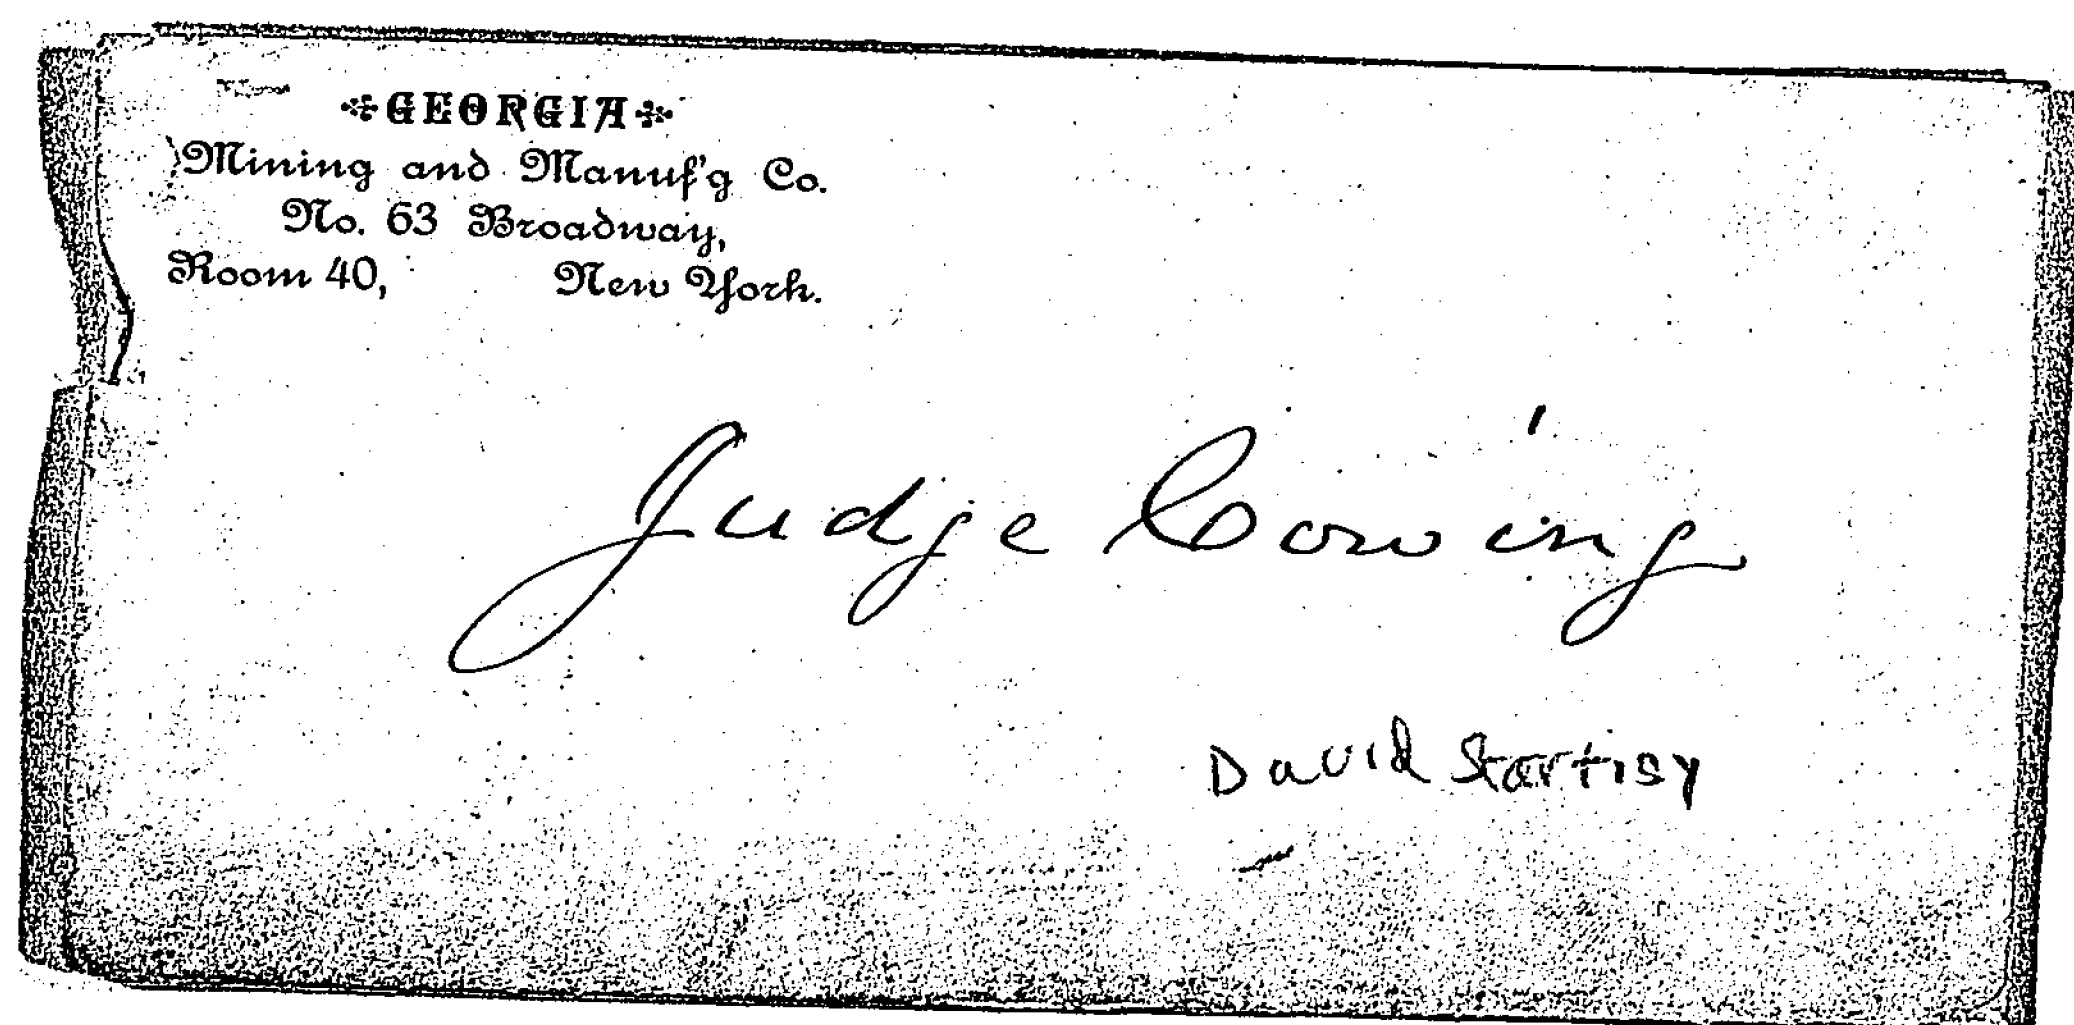 GEORGIA
Mining and Manuf'g Co.
No. 63 Broadway,
Room 40, New York.
Judge Cowing
David Startisy